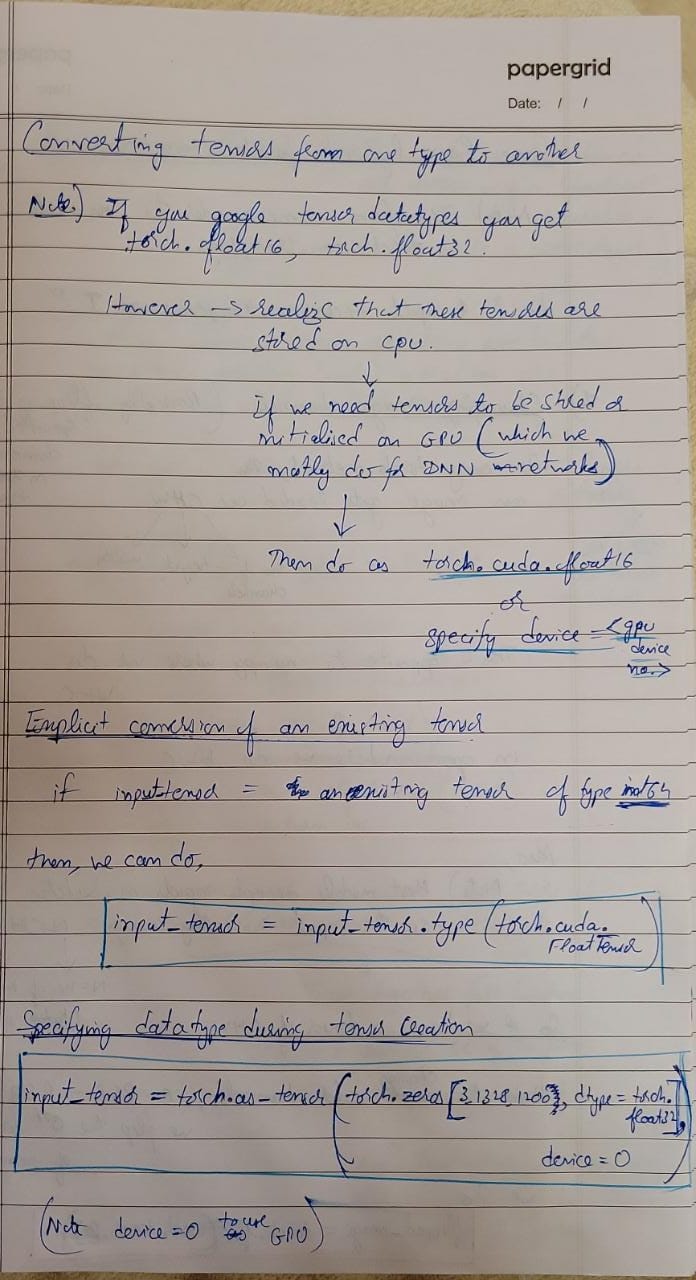 papergrid
Date: / /
Converting tensors from one type to another
Note) If you google tensor datatypes you get
torch.float16, torch.float32.
However → realize that these tensors are
stored on cpu.
↓
if we need tensors to be stored or
initialised on GPU (which we
mostly do for DNN networks)
↓
Then do as torch.cuda.float16
or
specify device = <gpu
device
no.>
Explicit conversion of an existing tensor
if input tensor = an existing tensor of type int64
then, we can do,
input_tensor = input_tensor.type (torch.cuda.
FloatTensor)
Specifying datatype during tensor creation
input_tensor = torch.as_tensor (torch.zeros [3,1328,1200], dtype = torch.
float32],
device = 0)
(Note device = 0 to use GPU)